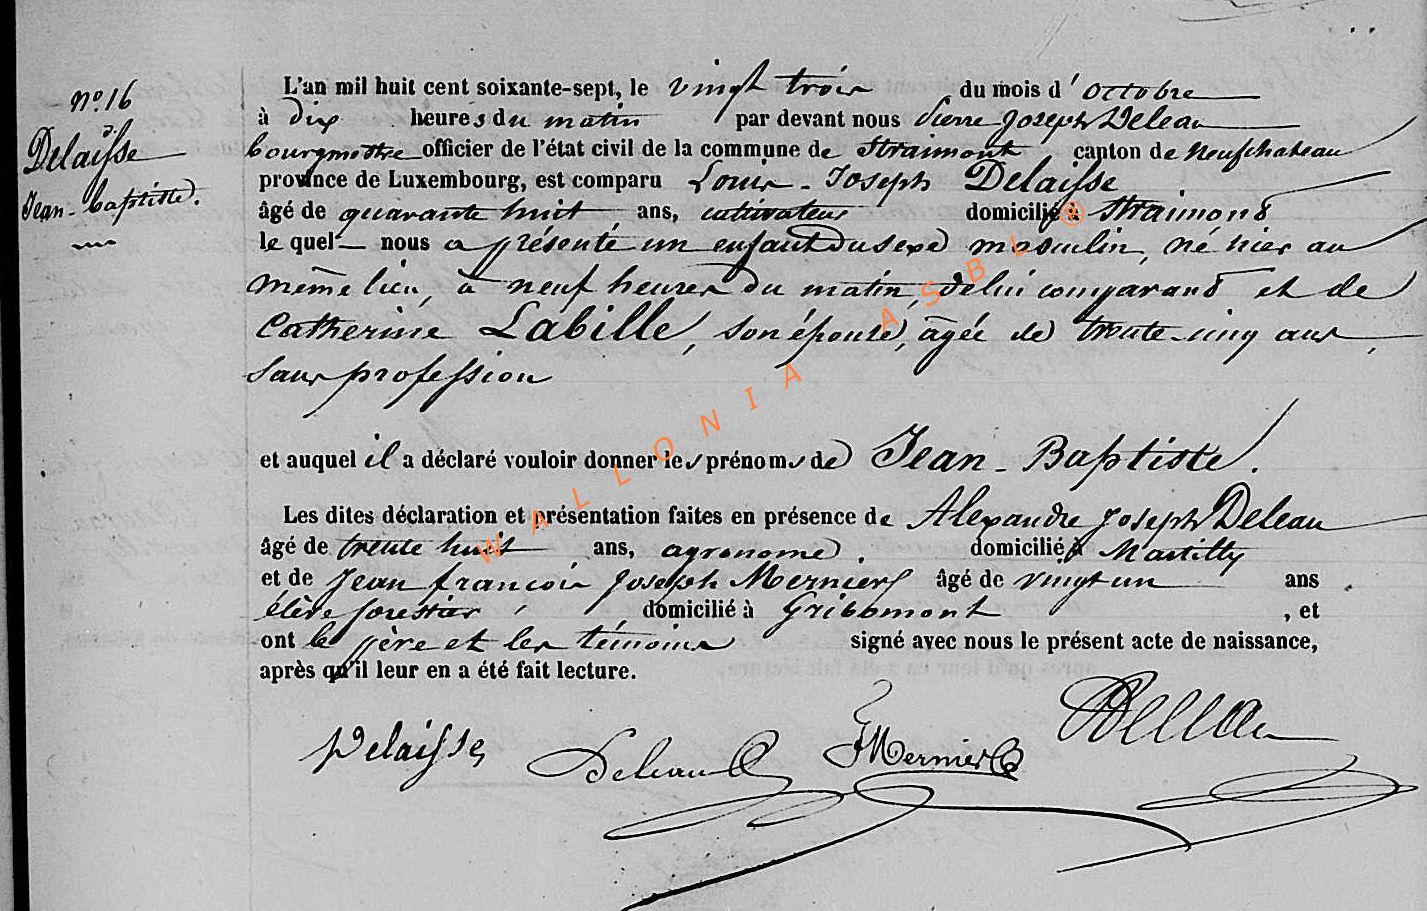 n°. 16
Delaisse
Jean-Baptiste.
L'an mil huit cent soixante-sept, le vingt trois du mois d'octobre
à dix heures du matin par devant nous Pierre Joseph Deleau
bourgmestre officier de l'état civil de la commune de Straimont canton de Neufchateau
province de Luxembourg, est comparu Louis-Joseph Delaisse
âgé de quarante huit ans, cultivateur domicilié à Straimont
le quel nous a présenté un enfant du sexe masculin, né hier au
même lieu, à neuf heures du matin, de lui comparant et de
Catherine Labille, son épouse, âgée de trente-cinq ans,
sans profession
et auquel il a déclaré vouloir donner les prénoms de Jean-Baptiste.
Les dites déclaration et présentation faites en présence de Alexandre Joseph Deleau
âgé de trente huit ans, agronome, domicilié à Martilly
et de Jean françois Joseph Mernier âgé de vingt un ans
élève forestier, domicilié à Gribomont, et
ont le père et les témoins signé avec nous le présent acte de naissance,
après qu'il leur en a été fait lecture.
Delaisse Deleau JMernier Deleau
WALLONIA ASBL ®